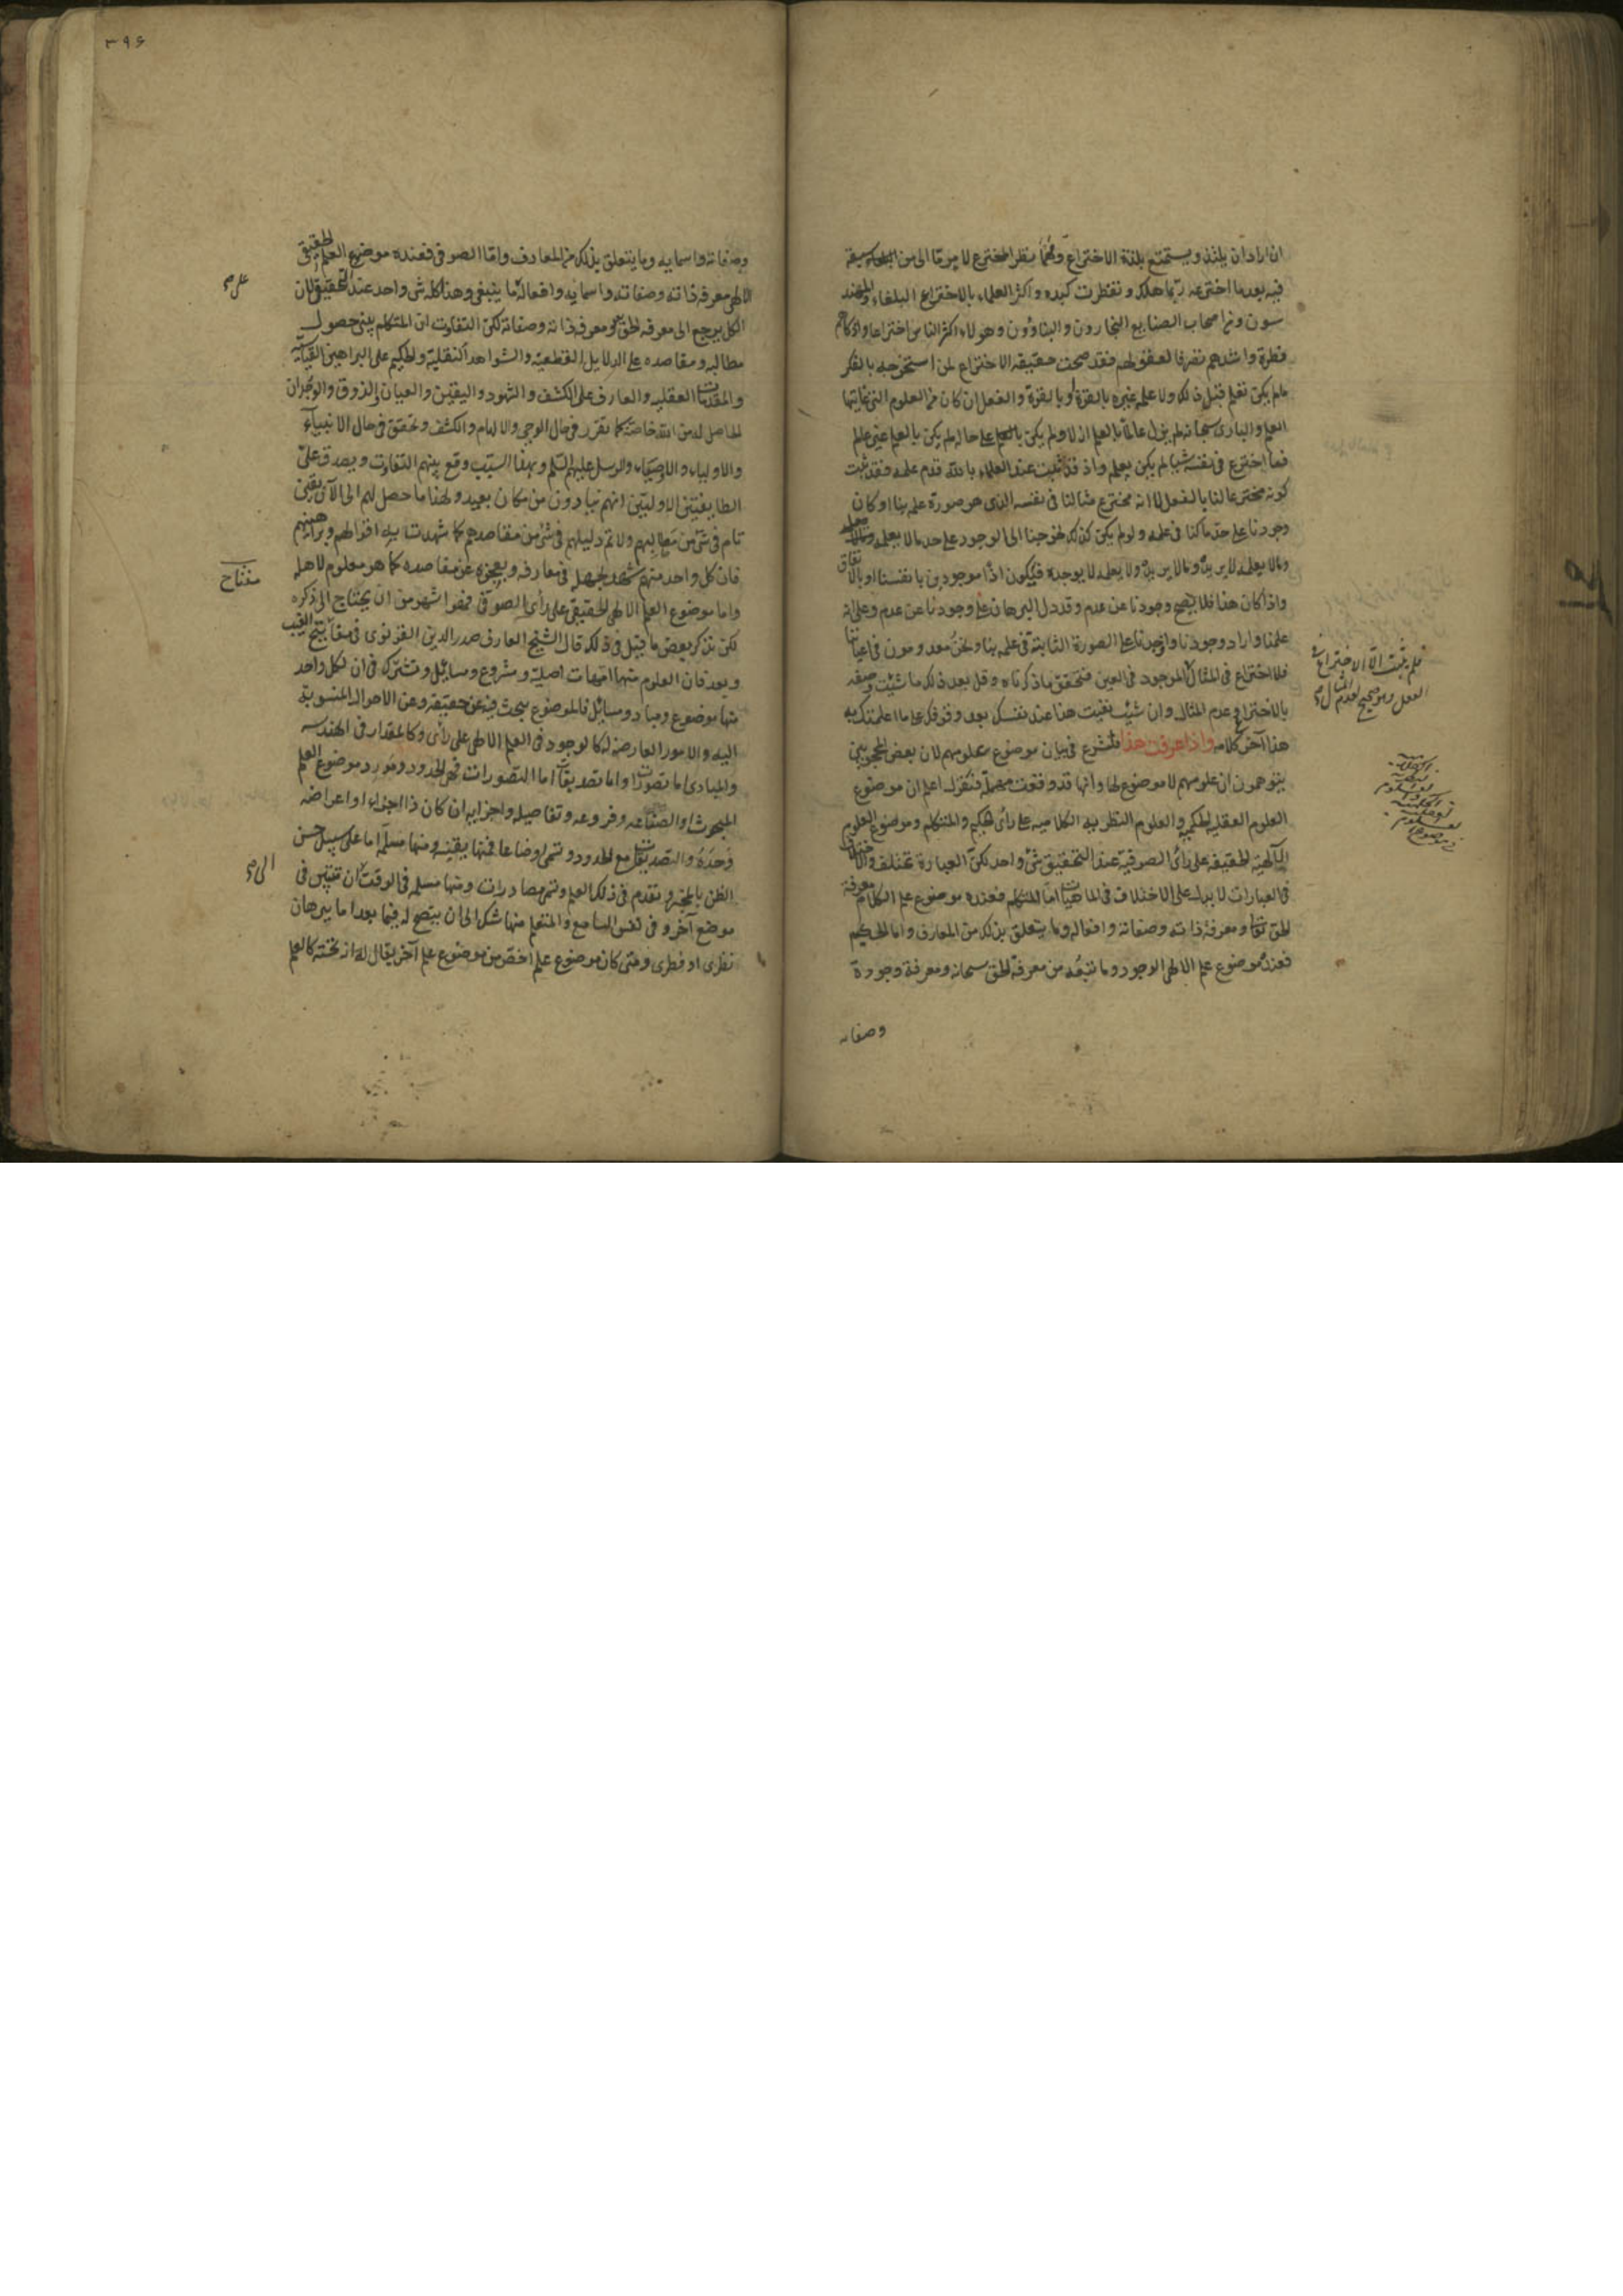 ان اراد ان يلتذ ويستمتع بلذة الاختراع ومهما نظر المخترع لامر ما الى من سبقه
فيه بعد ما اخترعه ربما هلك وتفطرت كبده واكثر العلماء بالاختراع البلغاء والمهند
سون ومن اصحاب الصنايع النجارون والبناؤون وهولاء اكثر الناس اختراعا واذكاهم
فطرة واشدهم تصرفا لعقولهم فقد صحت حقيقة الاختراع لمن استخرج بالفكر
مالم يكن تعلم قبل ذلك ولا علمه غيره بالقوة او بالقوة والفعل ان كان من العلوم التى غايتها
العلم والبارى سبحانه لم يزل عالما بالعلم ازلا ولم يكن بالعلم على حالة لم يكن بالعلم غير عالم
فما اخترع فى نفسه شيأ لم يكن يعلمه واذ قد ثبت عند العلماء بالله قدم علمه فقد ثبت
كونه مخترعا لنا بالفعل لا انه مخترع مثالنا فى نفسه الذى هو صورة علمه بنا اذ كان
وجودنا على حد ما كنا فى علمه ولو لم يكن كذلك لخرجنا الى الوجود على حد مالا يعلمه ومالا يعلمه
ومالا يعلمه لا يريده ومالا يريده ولا يعلمه لا يوجده فيكون اذا موجودين بانفسنا او بالاتفاق
واذا كان هذا فلا يصح وجودنا عن عدم وقد دل البرهان على وجودنا عن عدم وعلى انه
علمنا واراد وجودنا واوجدنا على الصورة الثابتة فى علمه بنا ونحن معدومون فى اعياننا
فلا اختراع فى المثال الموجود فى العين فتحقق ما ذكرناه وقل بعد ذلك ما شئت وصفه
بالاختراع وعدم المثال وان شئت نفيت هذا عنه نفسك بعد وقوفك على ما اعلمتك به
هذا آخر كلامه واذا عرفت هذا فلنشرع فى بيان موضوع علومهم لان بعض المحجوبين
يتوهمون ان علومهم لا موضوع لها وانها قد وقعت مهملة فنقول اعلم ان موضوع
العلوم العقلية الحكمية والعلوم النظرية الكلامية على رأى الحكيم والمتكلم وموضوع العلوم
الالهية الحقيقية على رأى الصوفية عند التحقيق شئ واحد لكن العبارة تختلف والاختلاف
فى العبارات لا يدل على الاختلاف فى الماهيات اما المتكلم فعنده موضوع علم الكلام معرفة
الحق تعالى ومعرفة ذاته وصفاته وافعاله وما يتعلق بذلك من المعارف واما الحكيم
فعنده موضوع علم الالهى الوجود وما يتبعه من معرفة الحق سبحانه ومعرفة وجوده
وصفاته
فلم يثبت الا الاختراع فى
الفعل وهو صحيح لعدم المثال صح
٣٩۶
وصفاته واسمايه وما يتعلق بذلك من المعارف واما الصوفى فعنده موضوع العلم الحقيقى
الالهى معرفة ذاته وصفاته واسمايه وافعاله ما ينبغى وهذا كله شى واحد عند التحقيق لان
الكل يرجع الى معرفة الحق ومعرفة ذاته وصفاته لكن التفاوت ان المتكلم يبنى حصول
مطالبه ومقاصده على الدلايل القطعية والشواهد النقلية والحكيم على البراهين القياسية
والمقدمات العقليه والعارف على الكشف والشهود واليقين والعيان والذوق والوجدان
الحاصل له من الله خاصة كما تقرر فى حال الوحى والالهام والكشف وتحقق فى حال الانبياء
والاولياء والاوصياء والرسل عليهم السلم وبهذا السبب وقع بينهم التفاوت ويصدق على
الطايفتين الاوليين انهم ينادون من مكان بعيد ولهذا ما حصل لهم الى الآن يقين
تام فى شئ من مطالبهم ولا تم دليلهم فى شئ من مقاصدهم كما شهدت به اقوالهم وبراهينهم
فان كل واحد منهم شهد بجهله فى معارفه وبعجزه عن مقاصده كما هو معلوم لاهله
واما موضوع العلم الالهى الحقيقى على رأى الصوفى فهو اشهر من ان يحتاج الى ذكره
لكن نذكر بعض ما قيل فى ذلك قال الشيخ العارف صدر الدين القونوى فى مفاتيح الغيب
وبعد فان العلوم منها امهات اصلية ومنها فروع ومسايل وتشترك فى ان لكل واحد
منها موضوع ومباد ومسايل فالموضوع يبحث فيه عن حقيقته وعن الاحوال المنسوبة
اليه والامور العارضة له كالوجود فى العلم الالهى على رأى وكالمقدار فى الهندسه
والمبادى اما تصورات واما تصديقات اما التصورات فهى الحدود وتورد موضوع العلم
المبحوث او الصناعه وفروعه وتفاصيله واجزايه ان كان ذا اجزاء او اعراضه
وحده والتصديقات مع الحدود وتسمى اوضاعا فمنها يقينيه ومنها مسلمة اما على سبيل حسن
الظن بالمخبر وتقدم فى ذلك العلم وتسمى مصادرات ومنها مسلمه فى الوقت الى ان تتبين فى
موضع آخر وفى نفس السامع والمتعلم منها شك الى ان يتضح له فيما بعد اما ببرهان
نظرى او فطرى ومتى كان موضوع علم اخص من موضوع علم آخر يقال له انه تحته كالعلم
على صح
مفتاح
الى صح